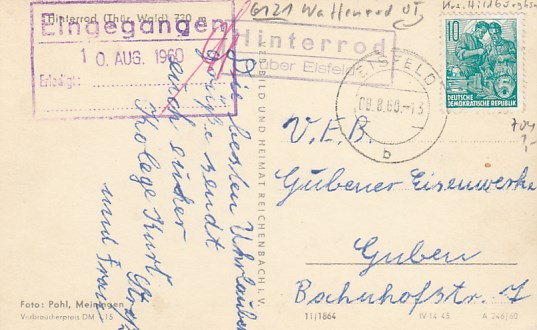 Hinterrod (Thür. Wald) 720 m
6121 Waffenrod ÜT
Krs. Hildburghsn
Eingegangen
10. AUG. 1960
Erledigt:
Hinterrod
über Eisfeld
EISFELD
09.8.60.-13
b
10
DEUTSCHE
DEMOKRATISCHE REPUBLIK
704
1,-
Die besten Uhrlaubs
grüße sendt
euch eucher
Kolege Kurt
und Frau
V.E.B.
Gubener Eisenwerke
Guben
Bahnhofstr. 7
BILD UND HEIMAT REICHENBACH I. V.
Foto: Pohl, Meiningen
Verbraucherpreis DM -,15
11/1864
IV-14-45
A 246/60